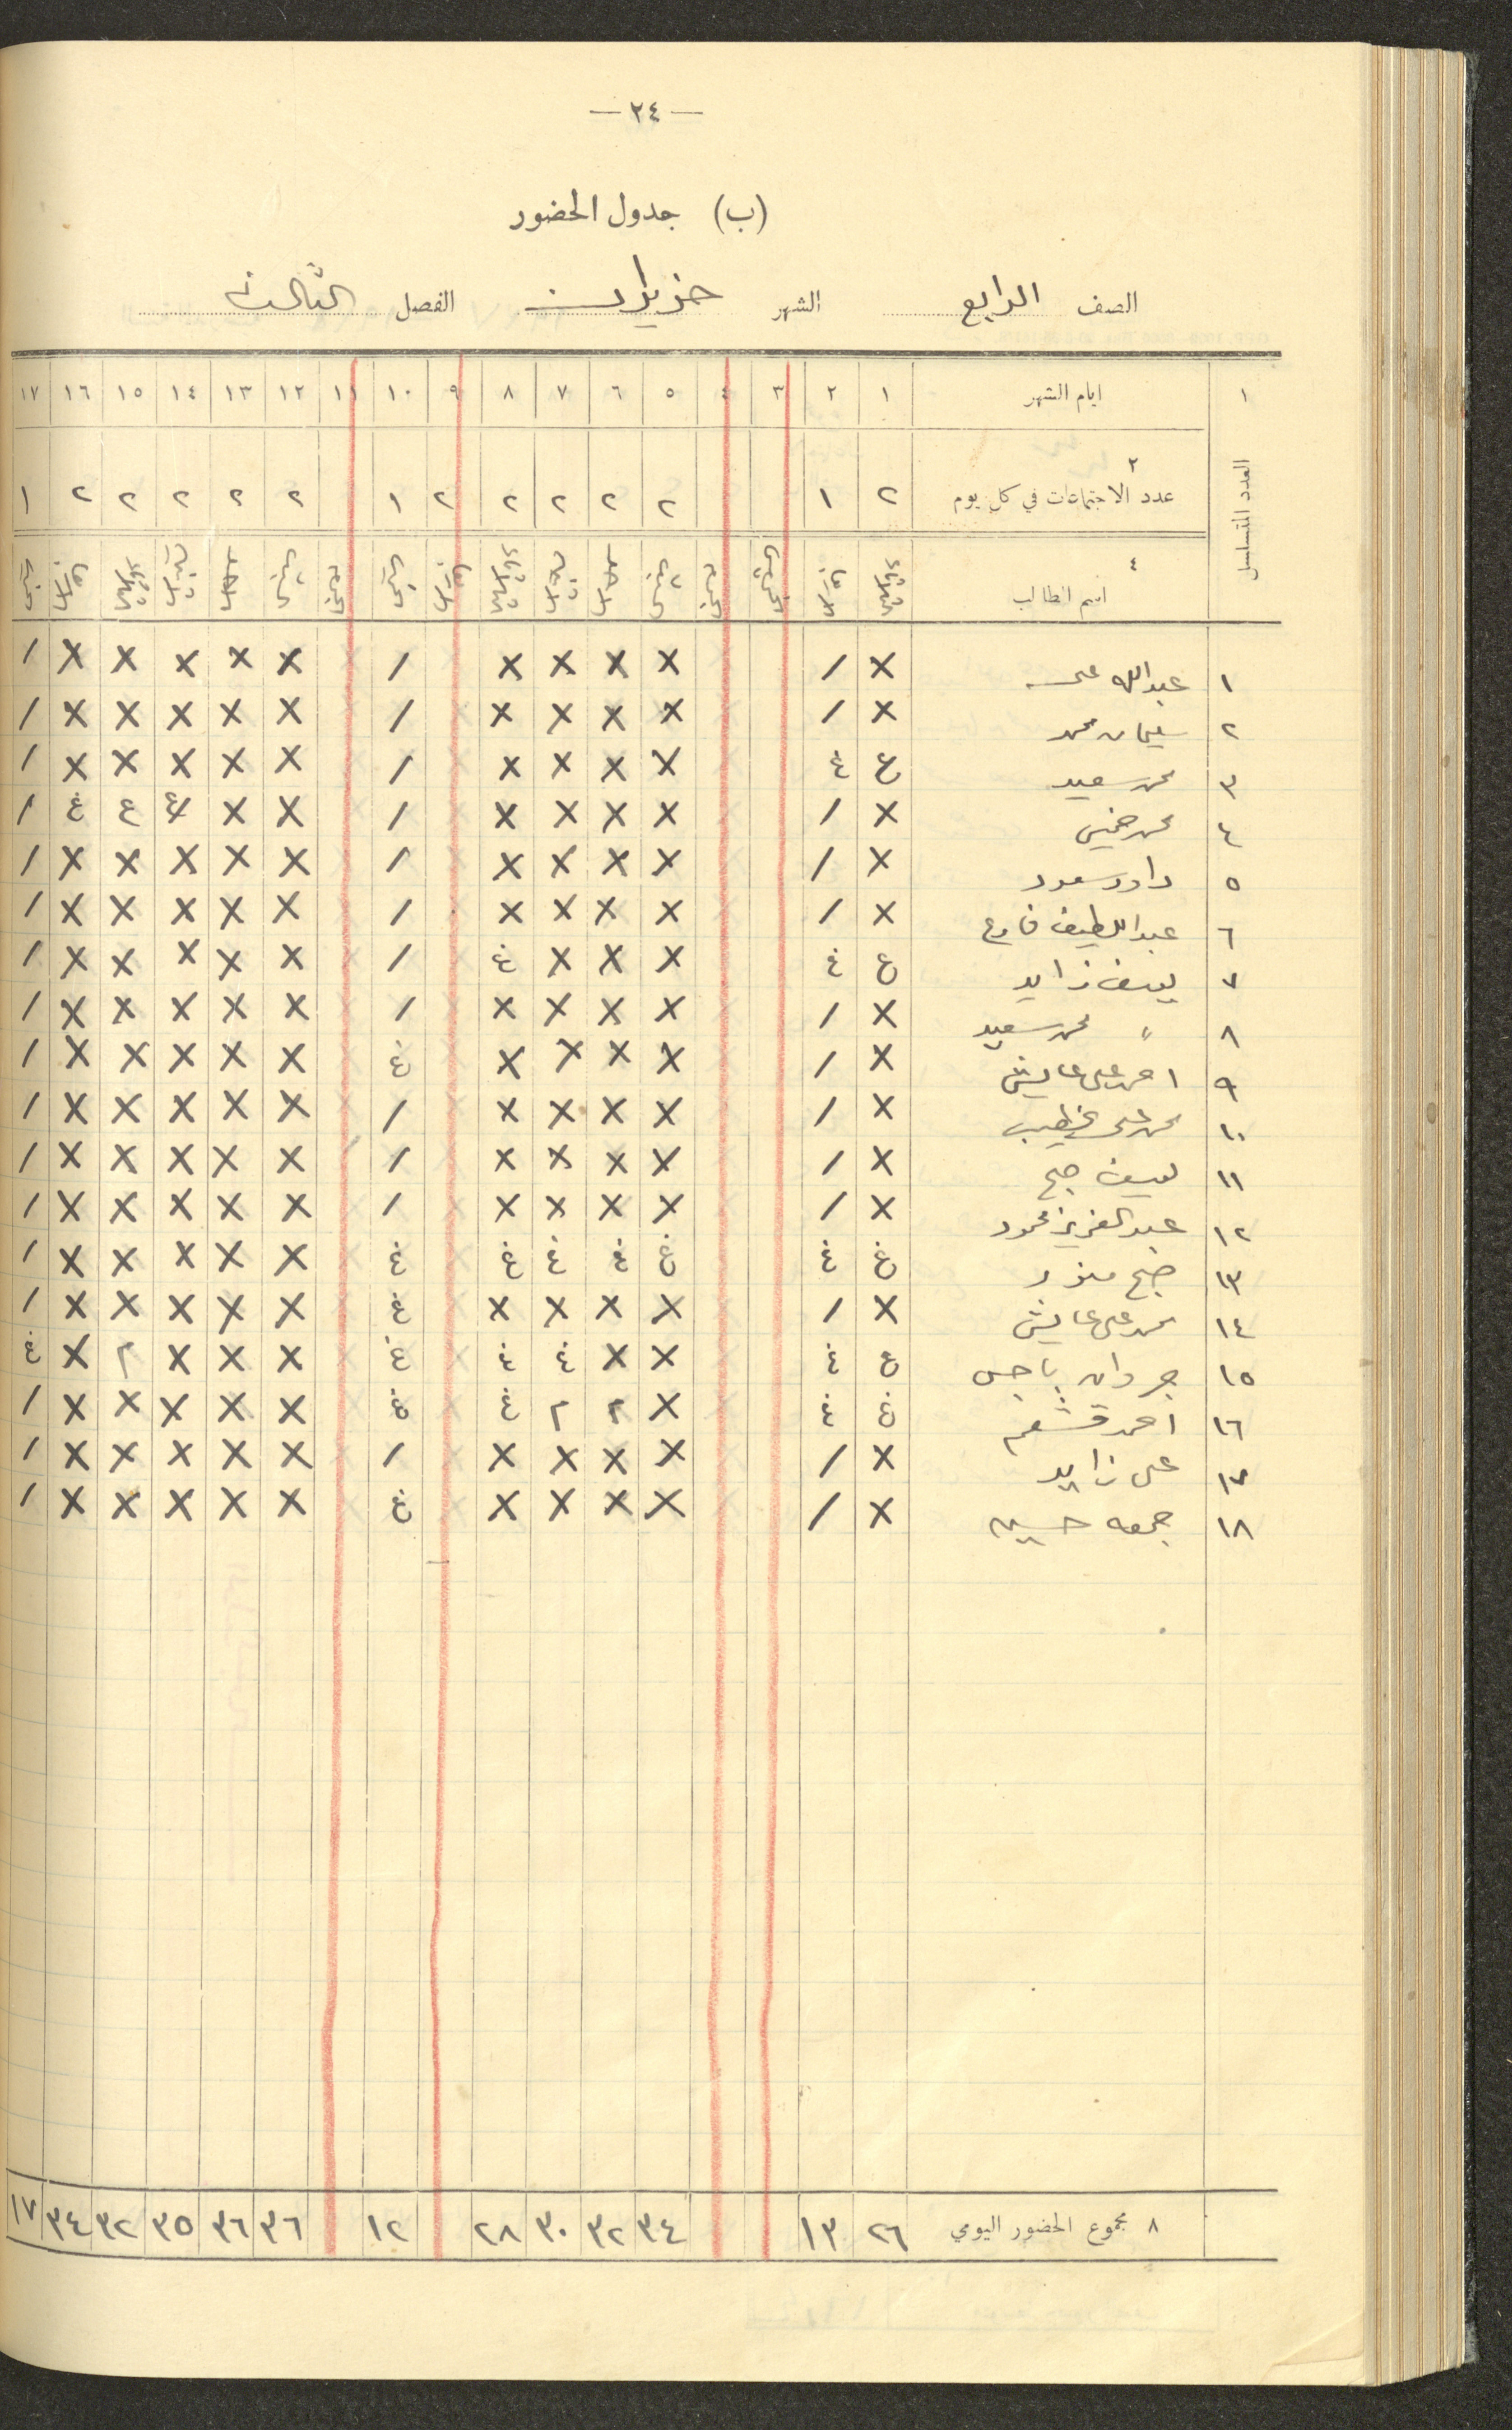 — ٢٤ —
(ب) جدول الحضور
الصف الرابع الشهر حزيران الفصل الثالث
١ ايام الشهر ١ ٢ ٣ ٤ ٥ ٦ ٧ ٨ ٩ ١٠ ١١ ١٢ ١٣ ١٤ ١٥ ١٦ ١٧
العدد المتسلسل
٢ عدد الاجتماعات في كل يوم ٢ ١ ٢ ٢ ٢ ٢ ٢ ١ ٢ ٢ ٢ ٢ ٢ ١
٤ اسم الطالب الاربعاء الخميس الجمعة الاحد السبت
١ عبدالله علي X / X X X X / X X X X X /
٢ سليمان محمد X / X X X X / X X X X X /
٣ محمد سعيد غ غ X X X X / X X X X X /
٤ محمد خميس X / X X X X / X X غ غ غ /
٥ داود سعود X / X X X X / X X X X X /
٦ عبد اللطيف X / X X X X / X X X X X /
٧ يوسف زايد غ غ X X X غ / X X X X X /
٨ " محمد سعيد X / X X X X / X X X X X /
٩ احمد علي عايش X / X X X X غ X X X X X /
١٠ محمد علي خطيب X / X X X X / X X X X X /
١١ يوسف صبح X / X X X X / X X X X X /
١٢ عبد العزيز محمود X / X X X X / X X X X X /
١٣ صبح غ غ غ غ غ غ غ X X X X X /
١٤ محمد علي عايش X / X X X X غ X X X X X /
١٥ باجس غ غ X X غ غ غ X X X م X غ
١٦ احمد قشعم غ غ X م م غ غ X X X X X /
١٧ علي زايد X / X X X X / X X X X X /
١٨ جمعه حسين X / X X X X غ X X X X X /
٨ مجموع الحضور اليومي ٢٦ ١٣ ٣٤ ٣٢ ٣٠ ٢٨ ١٢ ٣٦ ٣٦ ٣٥ ٣٢ ٣٤ ١٧